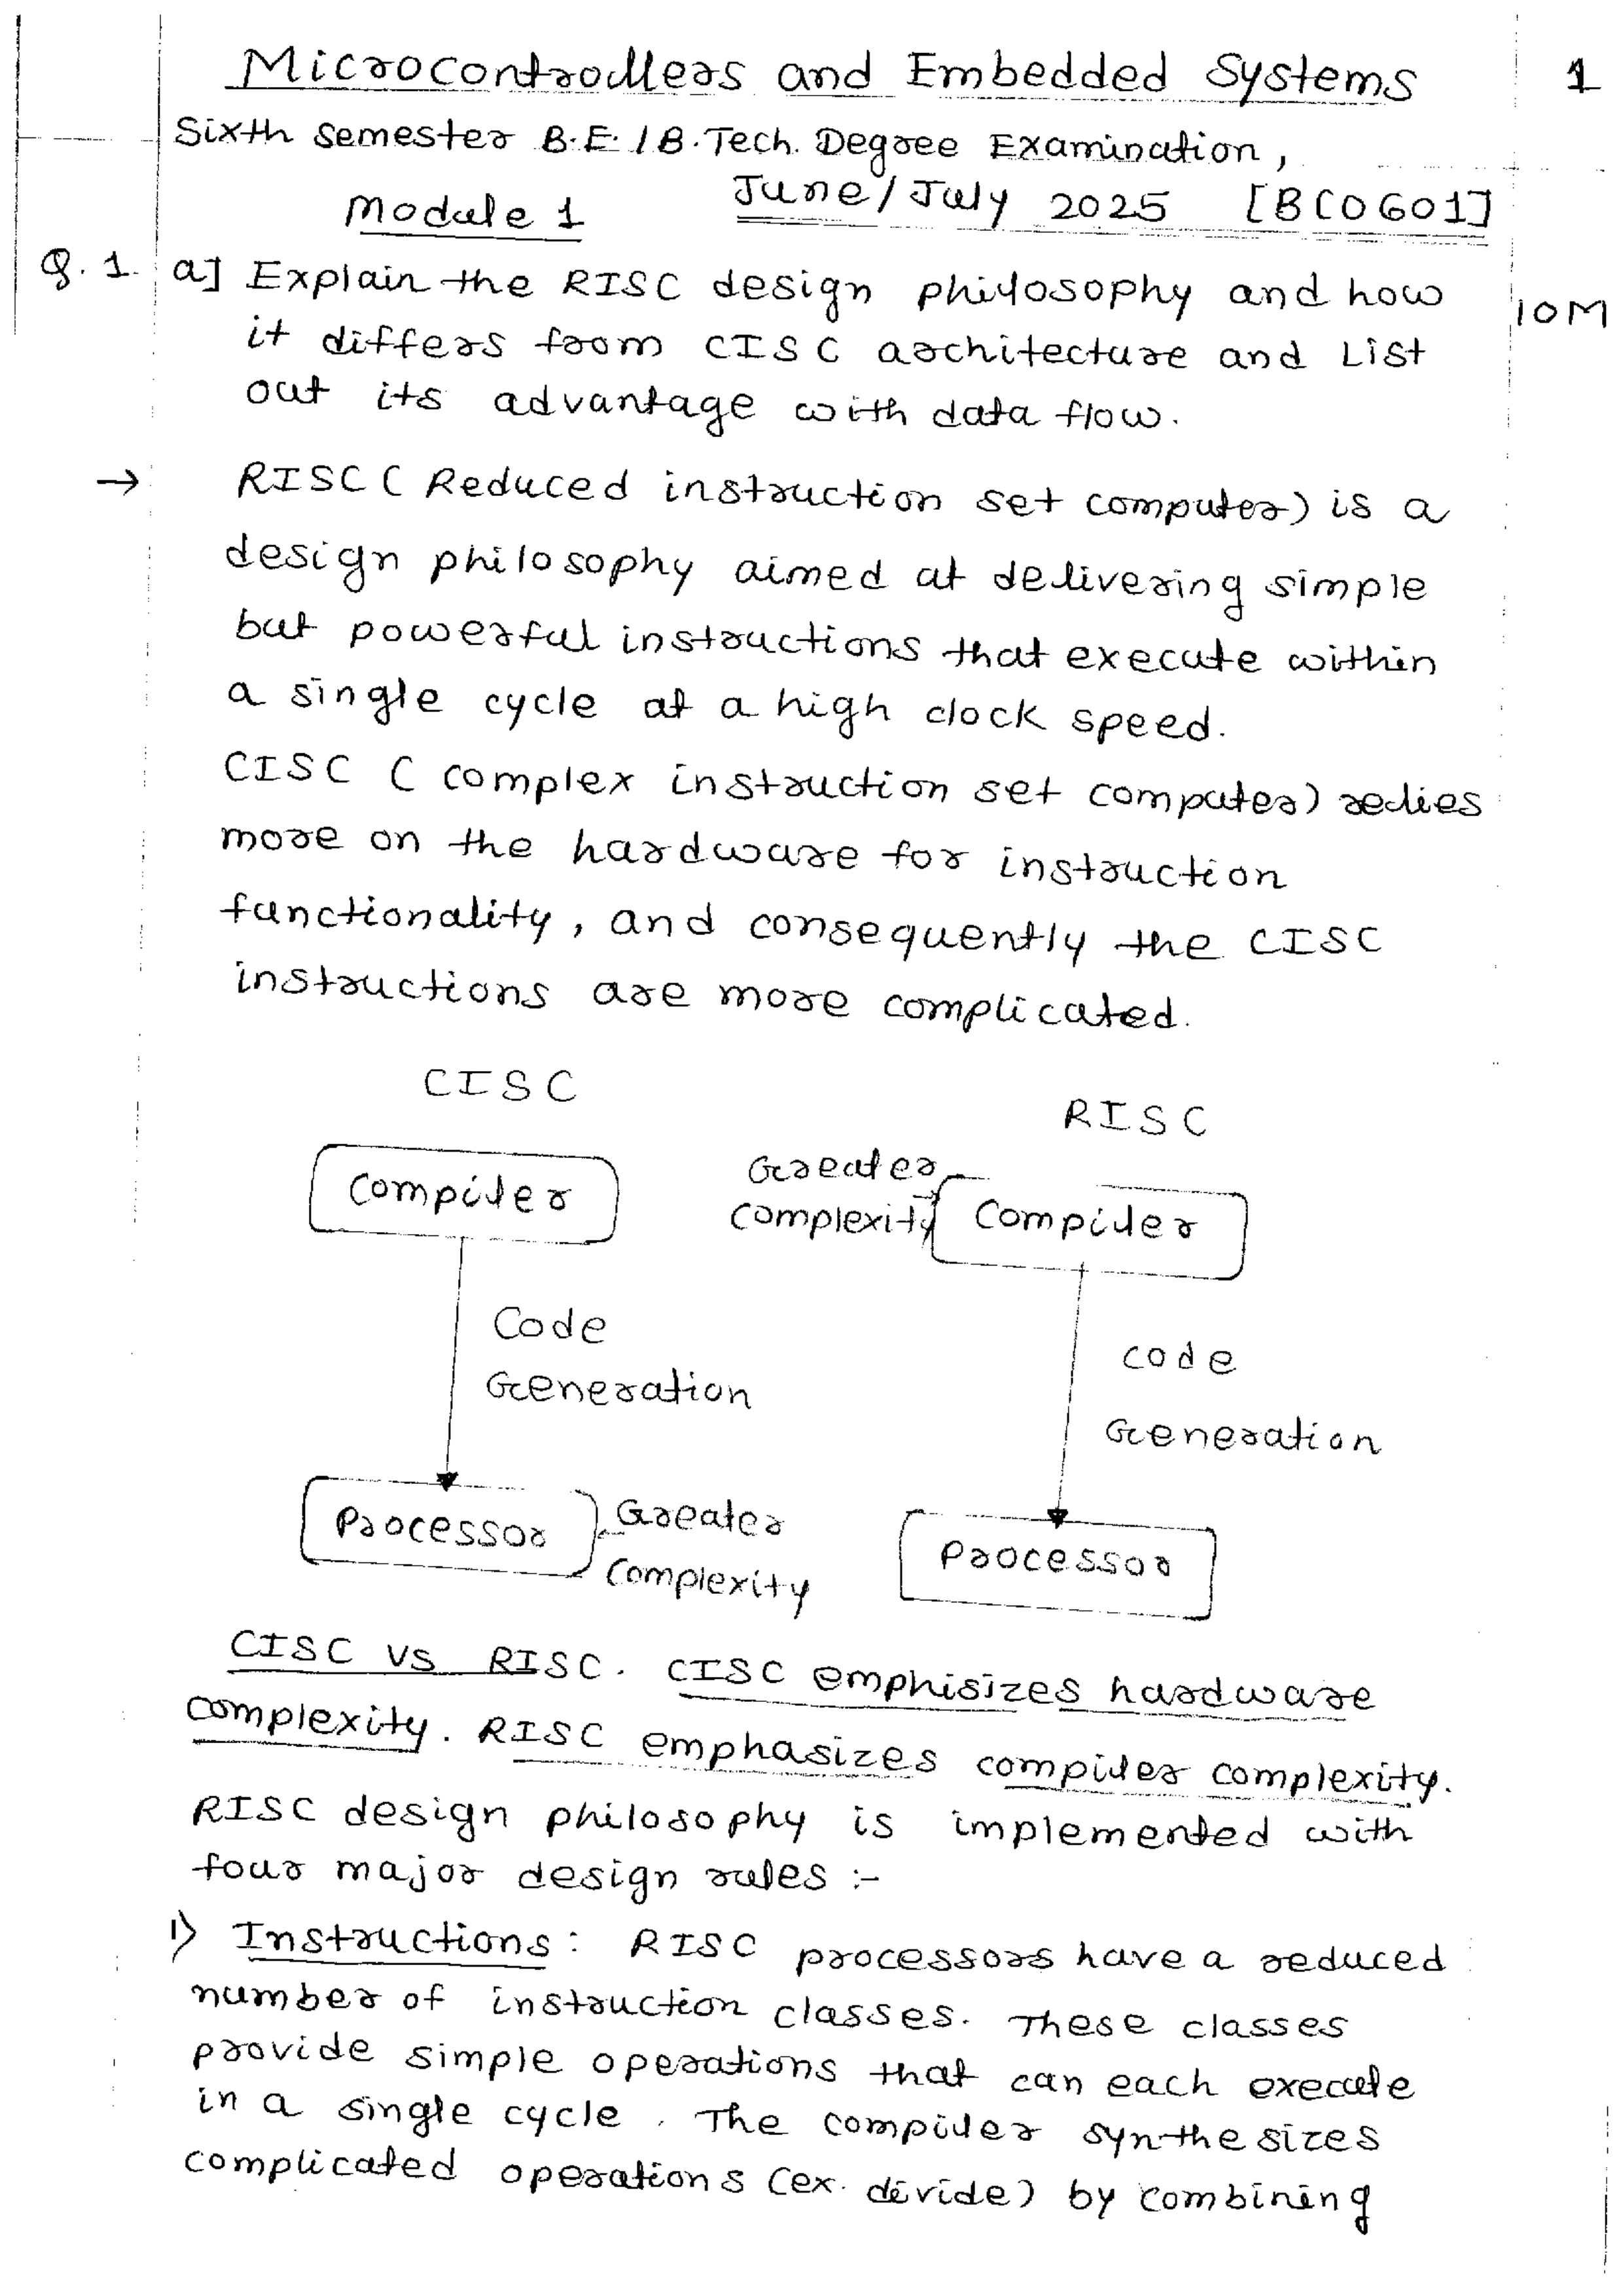 Microcontrollers and Embedded Systems 1
Sixth semester B.E./B.Tech. Degree Examination,
June/July 2025 [BCO601]
Module 1
Q.1. a] Explain the RISC design philosophy and how 10M
it differs from CISC architecture and List
out its advantage with data flow.
→ RISC ( Reduced instruction set computer) is a
design philosophy aimed at delivering simple
but powerful instructions that execute within
a single cycle at a high clock speed.
CISC ( complex instruction set computer) relies
more on the hardware for instruction
functionality, and consequently the CISC
instructions are more complicated.
CISC
RISC
Compiler
Greater
complexity
Compiler
Code
Generation
code
Generation
Processor
Greater
Complexity
Processor
CISC vs RISC. CISC emphisizes hardware
complexity. RISC emphasizes compiler complexity.
RISC design philosophy is implemented with
four major design rules :-
1) Instructions: RISC processors have a reduced
number of instruction classes. These classes
provide simple operations that can each execute
in a single cycle. The compiler synthesizes
complicated operations (ex. divide) by combining